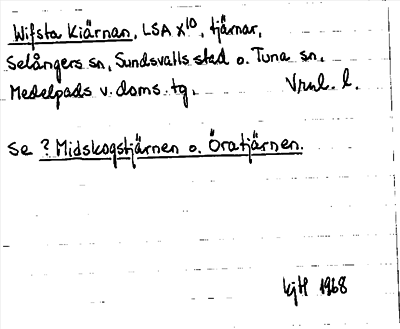 Wifsta Kiärnan, LSA X10, tjärnar,
Selångers sn, Sundsvalls stad o. Tuna sn,
Medelpads v. doms. tg. Vrnl. l.
Se ? Midskogstjärnen o. Öratjärnen.
kjH 1968